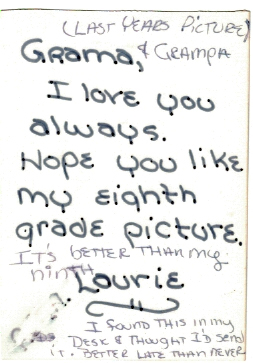 (LAST YEARS PICTURE)
Grama, & GRAMPA
I love you
always.
Hope you like
my eighth
grade picture.
IT'S BETTER THAN my
ninth
Laurie
I found THIS in my
DESK & THOUGHT I'D SEND
IT. BETTER LATE THAN NEVER